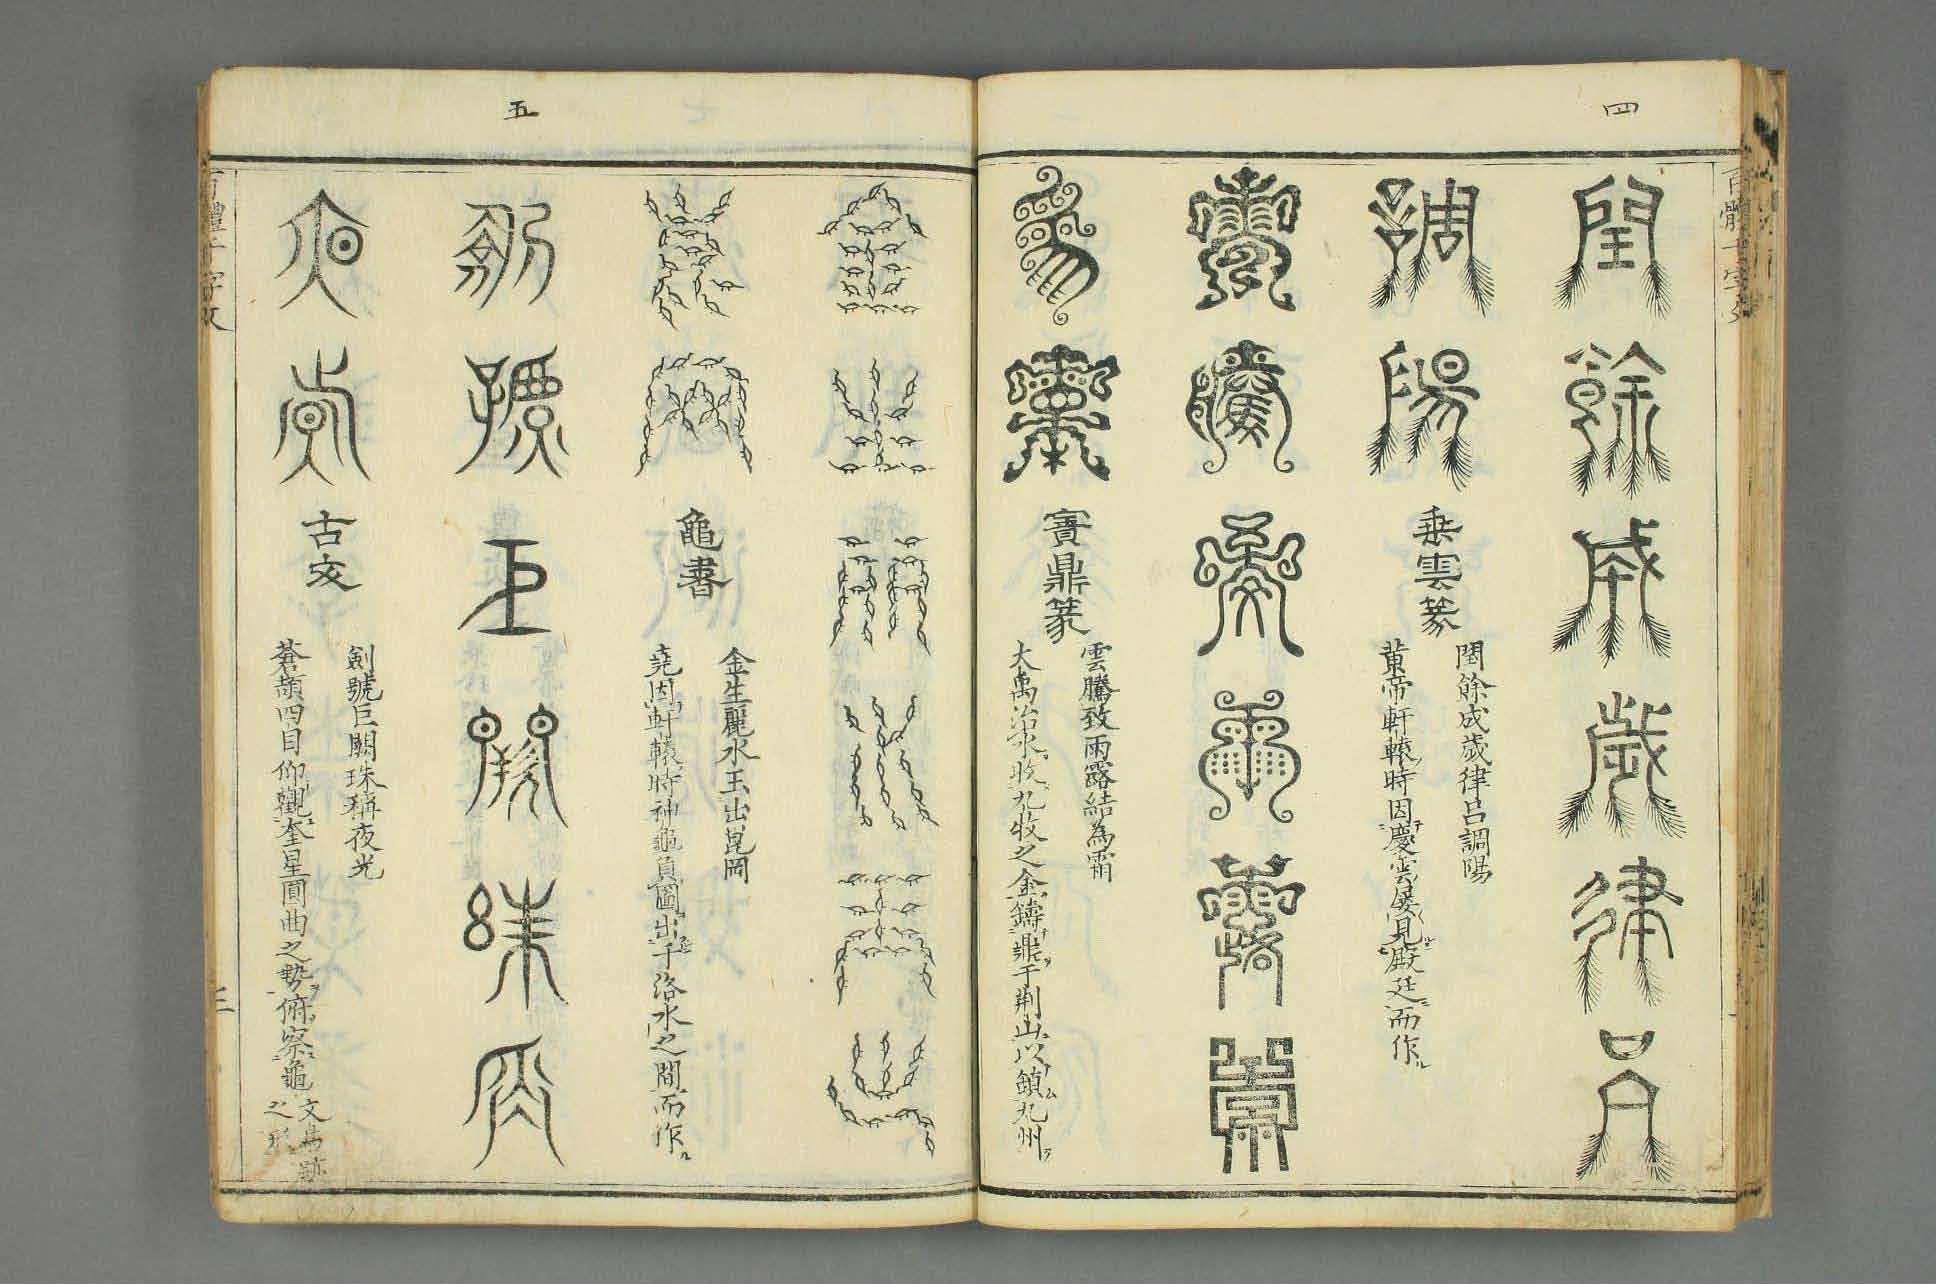 四
百體千字文
閏餘成歲律呂
調陽
乗雲篆
閏餘成歲律呂調陽
黄帝軒轅時因慶雲屡見殿廷而作ル
雲騰致雨露結
為霜
寳鼎篆
雲騰致雨露結為霜
大禹治水收九牧之金鑄鼎于荆山以鎮九州
五
金生麗水玉出
崑岡
龜書
金生麗水玉出崑岡
堯因軒轅時神龜負圖出于洛水之間而作ル
劍號巨闕珠稱
夜光
古文
劍號巨闕珠稱夜光
蒼頡四目仰觀奎星圓曲之勢俯察龜文鳥跡之形
百體千字文
三